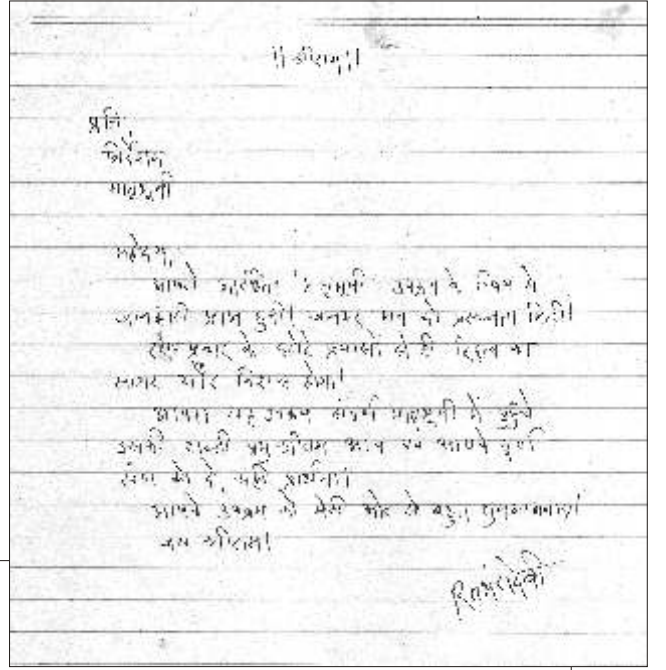 ॥ श्रीराम ॥
प्रति,
निर्देशक
मातृभूमी
महोदय,
आपके मातृभूमी उपक्रम के विषय में
जानकारी प्राप्त हुयी। जानकर मन को प्रसन्नता मिली।
इस प्रकार के छोटे प्रयासों से ही
सागर और विराट होगा।
आपका यह उपक्रम संपूर्ण मातृभूमी में पहुँचे
उसकी शक्ती प्रभु श्रीराम आप एवं आपके पूर्ण
संघ को दे, यही प्रार्थना।
आपके उपक्रम को मेरी ओर से बहुत शुभकामनाएं!
जय श्रीराम!